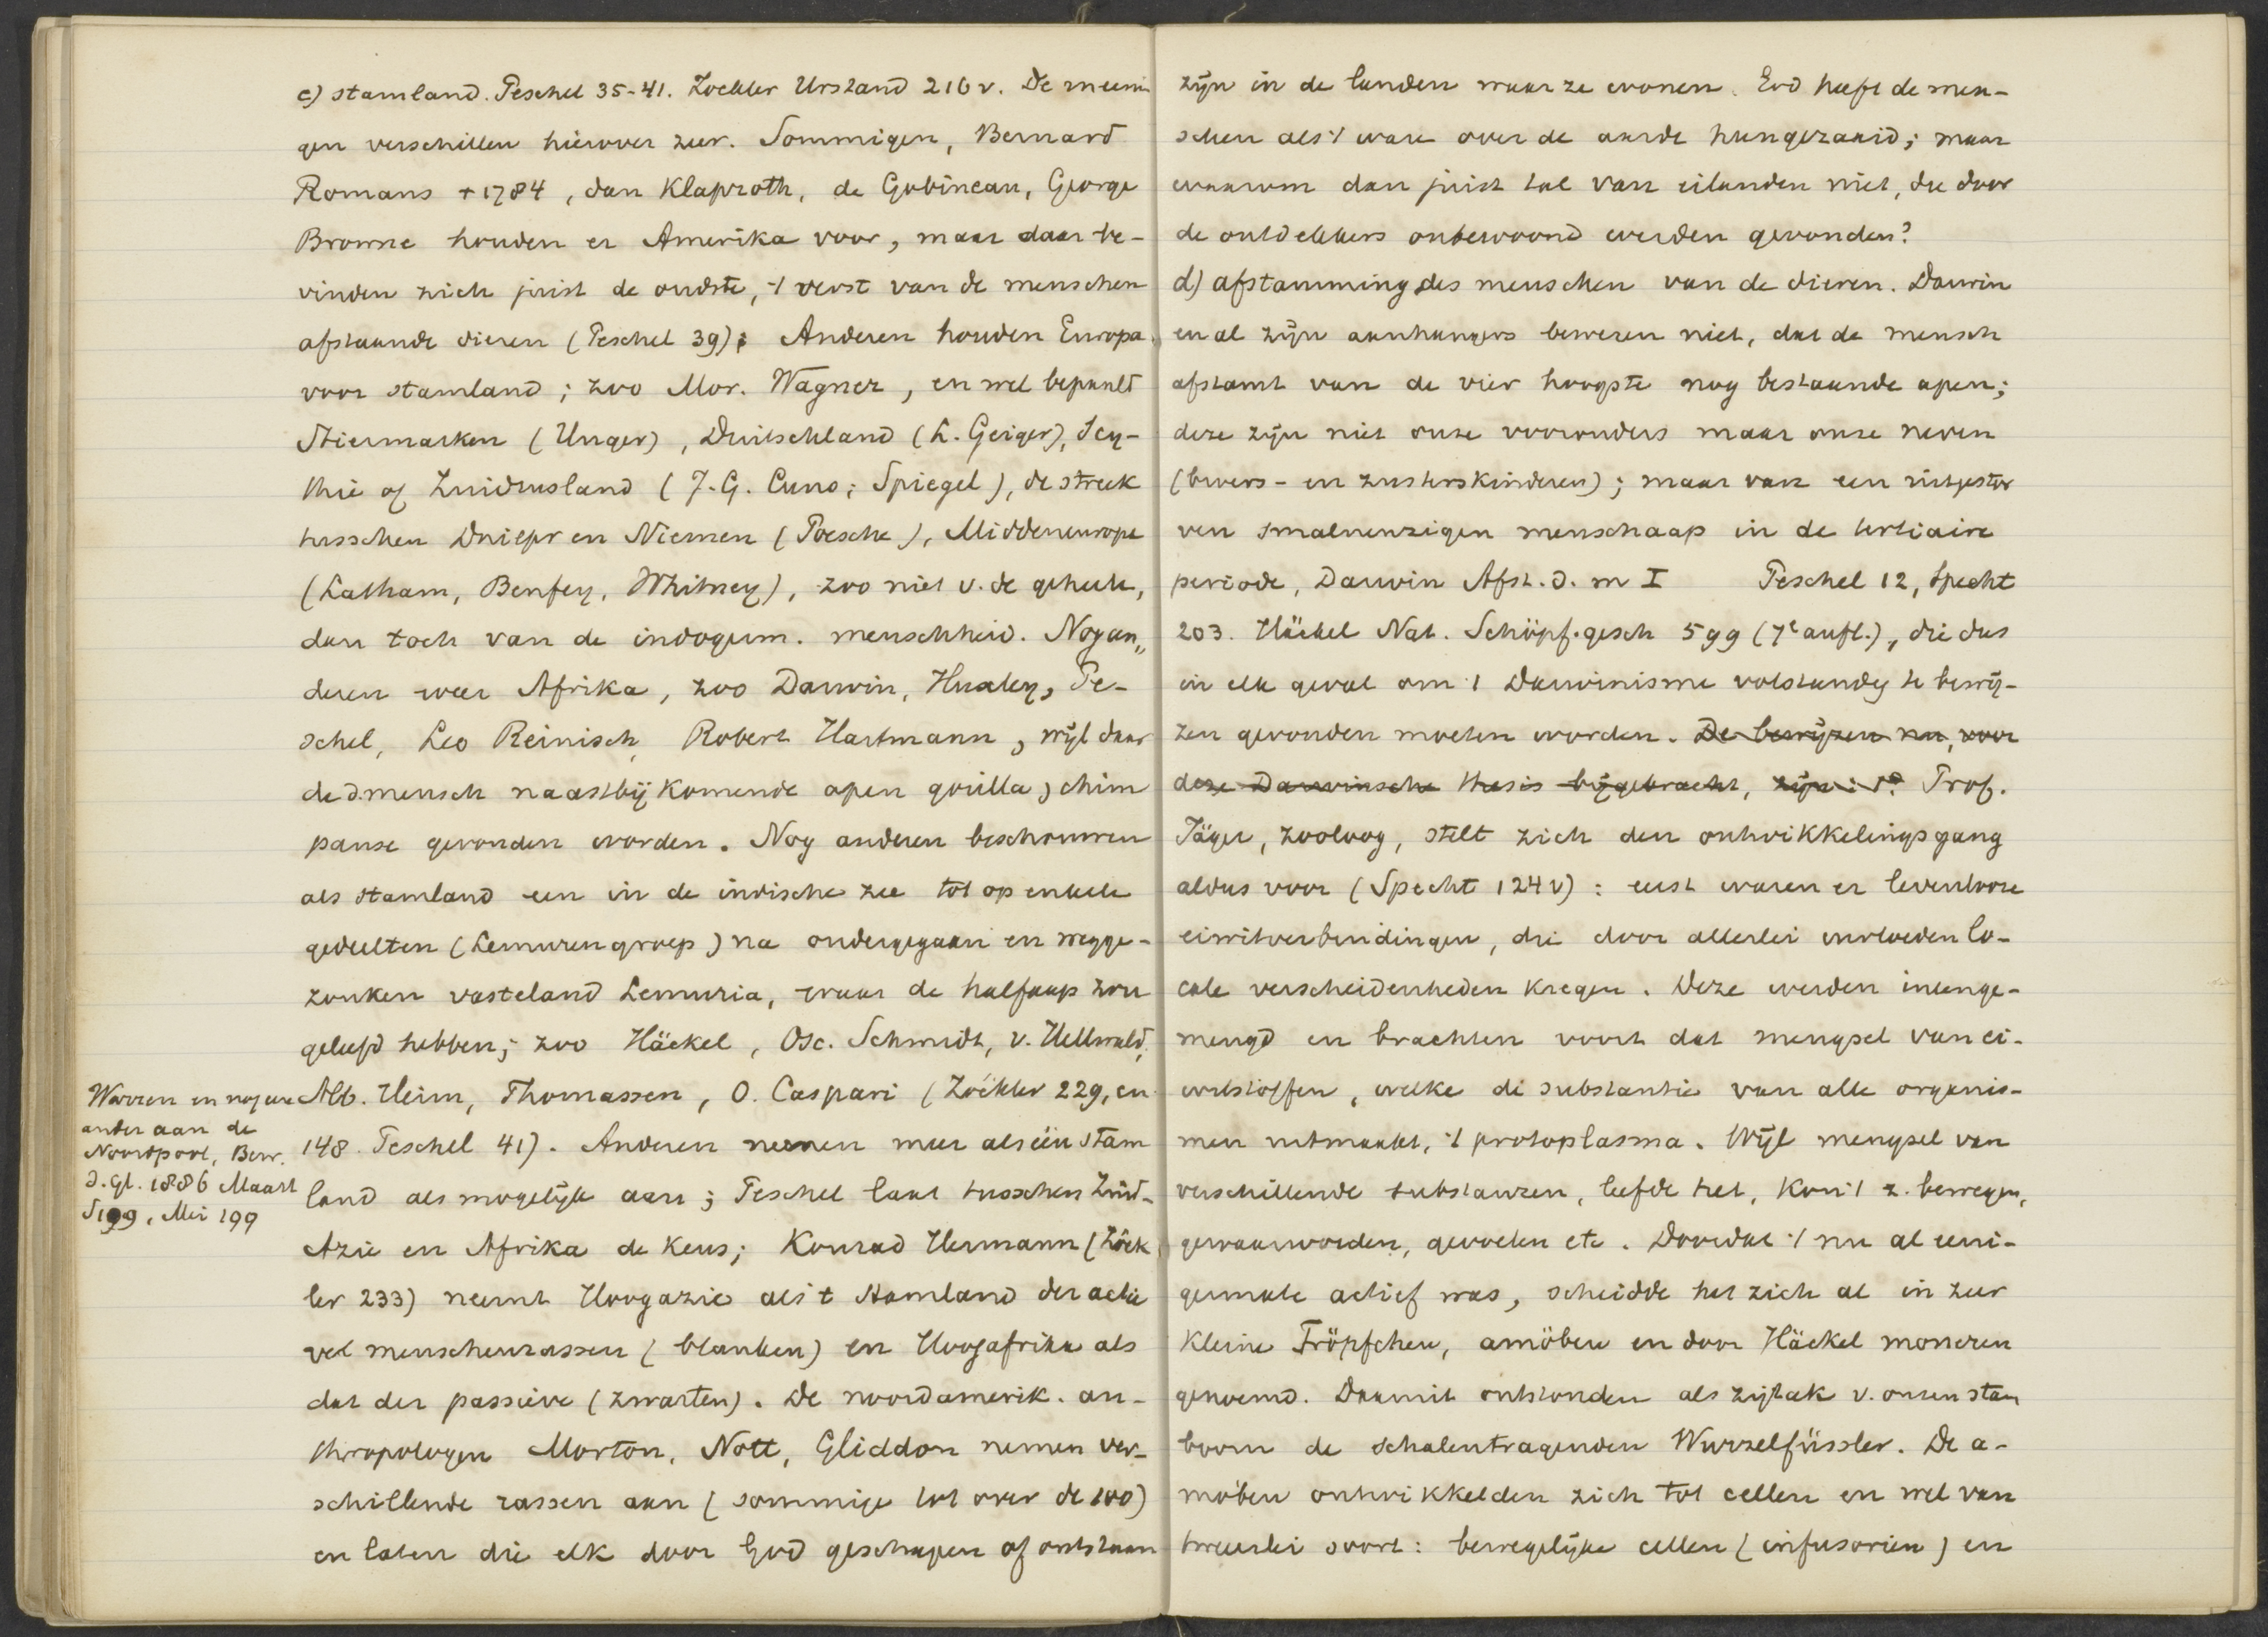 c) stamland. Peschel 35-41. Zöckler Urstand 216 v. De meenin
gen verschillen hierover zeer. Sommigen, Bernard
Romans + 1784, dan Klaproth, de Gobineau, George
Browne houden er Amerika voor, maar daar be-
vinden zich juist de oudste, 't verst van de menschen
afstaande dieren (Peschel 39); Anderen houden Europa
voor stamland; zoo Mor. Wagner, en wel bepaald
Stiermarken (Unger), Duitschland (L. Geiger), Scy-
thie of Zuidrusland (J. G. Cuno; Spiegel), de streek
tusschen Dniepr en Niemen (Poesche), Middeneuropa
(Latham, Benfey, Whitney), zoo niet v. de geheele,
dan toch van de indogerm. menschheid. Nog an„
deren weer Afrika, zoo Darwin, Huxley, Pe-
schel, Leo Reinisch, Robert Hartmann, wijl daar
de d. mensch naastbij komende apen gorilla, chim
panse gevonden worden. Nog anderen beschouwen
als stamland een in de indische zee tot op enkele
gedeelten (Lemurengroep) na ondergegaan en wegge-
zonken vasteland Lemuria, waar de halfaap zou
geleefd hebben; zoo Häckel, Osc. Schmidt, v. Hellwald,
Alb. Heim, Thomassen, O. Caspari (Zöckler 229, en
148. Peschel 41). Anderen nemen meer als één stam
land als mogelijk aan; Peschel laat tusschen Zuid-
Azie en Afrika de keus; Konrad Hermann (Zöck
ler 233) neemt Hoogazie als 't stamland der actie
ve menschenrassen (blanken) en Hoogafrika als
dat der passieve (zwarten). De noordamerik. an-
thropologen Morton, Nott, Gliddon nemen ver-
schillende rassen aan (sommige tot over de 100)
en laten die elk door God geschapen of ontstaan
Warren en nog een
ander aan de
Noordpool, Bew.
d. Gl. 1886 Maart
S199, Mei 199
zijn in de landen waar ze wonen. God heeft de men-
schen als 't ware over de aarde heengezaaid; maar
waarom dan juist tal van eilanden niet, die door
de ontdekkers onbewoond werden gevonden?
d) afstamming des menschen van de dieren. Darwin
en al zijn aanhangers beweren niet, dat de mensch
afstamt van de vier hoogste nog bestaande apen;
deze zijn niet onze voorouders maar onze neven
(broers- en zusterskinderen); maar van een uitgestor
ven smalneuzigen menschaap in de tertiaire
periode, Darwin Afst. d. m I Peschel 12, Specht
203. Häckel Nat. Schöpf. gesch 599 (7e aufl.), die dus
in elk geval om 't Darwinisme volstandig te bewij-
zen gevonden moeten worden. De bewijzen nu, voor
deze Darwinsche thesis bijgebracht, zijn: 1o Prof.
Jäger, zooloog, stelt zich den ontwikkelingsgang
aldus voor (Specht 124 v): eerst waren er levenlooze
eiwitverbindingen, die door allerlei invloeden lo-
cale verscheidenheden kregen. Deze werden ineenge-
mengd en brachten voort dat mengsel van ei-
witstoffen, welke de substantie van alle organis-
men uitmaakt, 't protoplasma. Wijl mengsel van
verschillende substanzen, leefde het, kon 't z. bewegen,
gewaarworden, gevoelen etc. Doordat 't nu al eeni-
germate actief was, scheidde het zich al in zeer
kleine Tröpfchen, amöben en door Häckel moneren
genoemd. Daaruit ontstonden als zijtak v. onzen stam
boom de schalentragenden Wurzelfüssler. De a-
möben ontwikkelden zich tot cellen en wel van
tweeerlei soort: bewegelijke cellen (infusorien) en